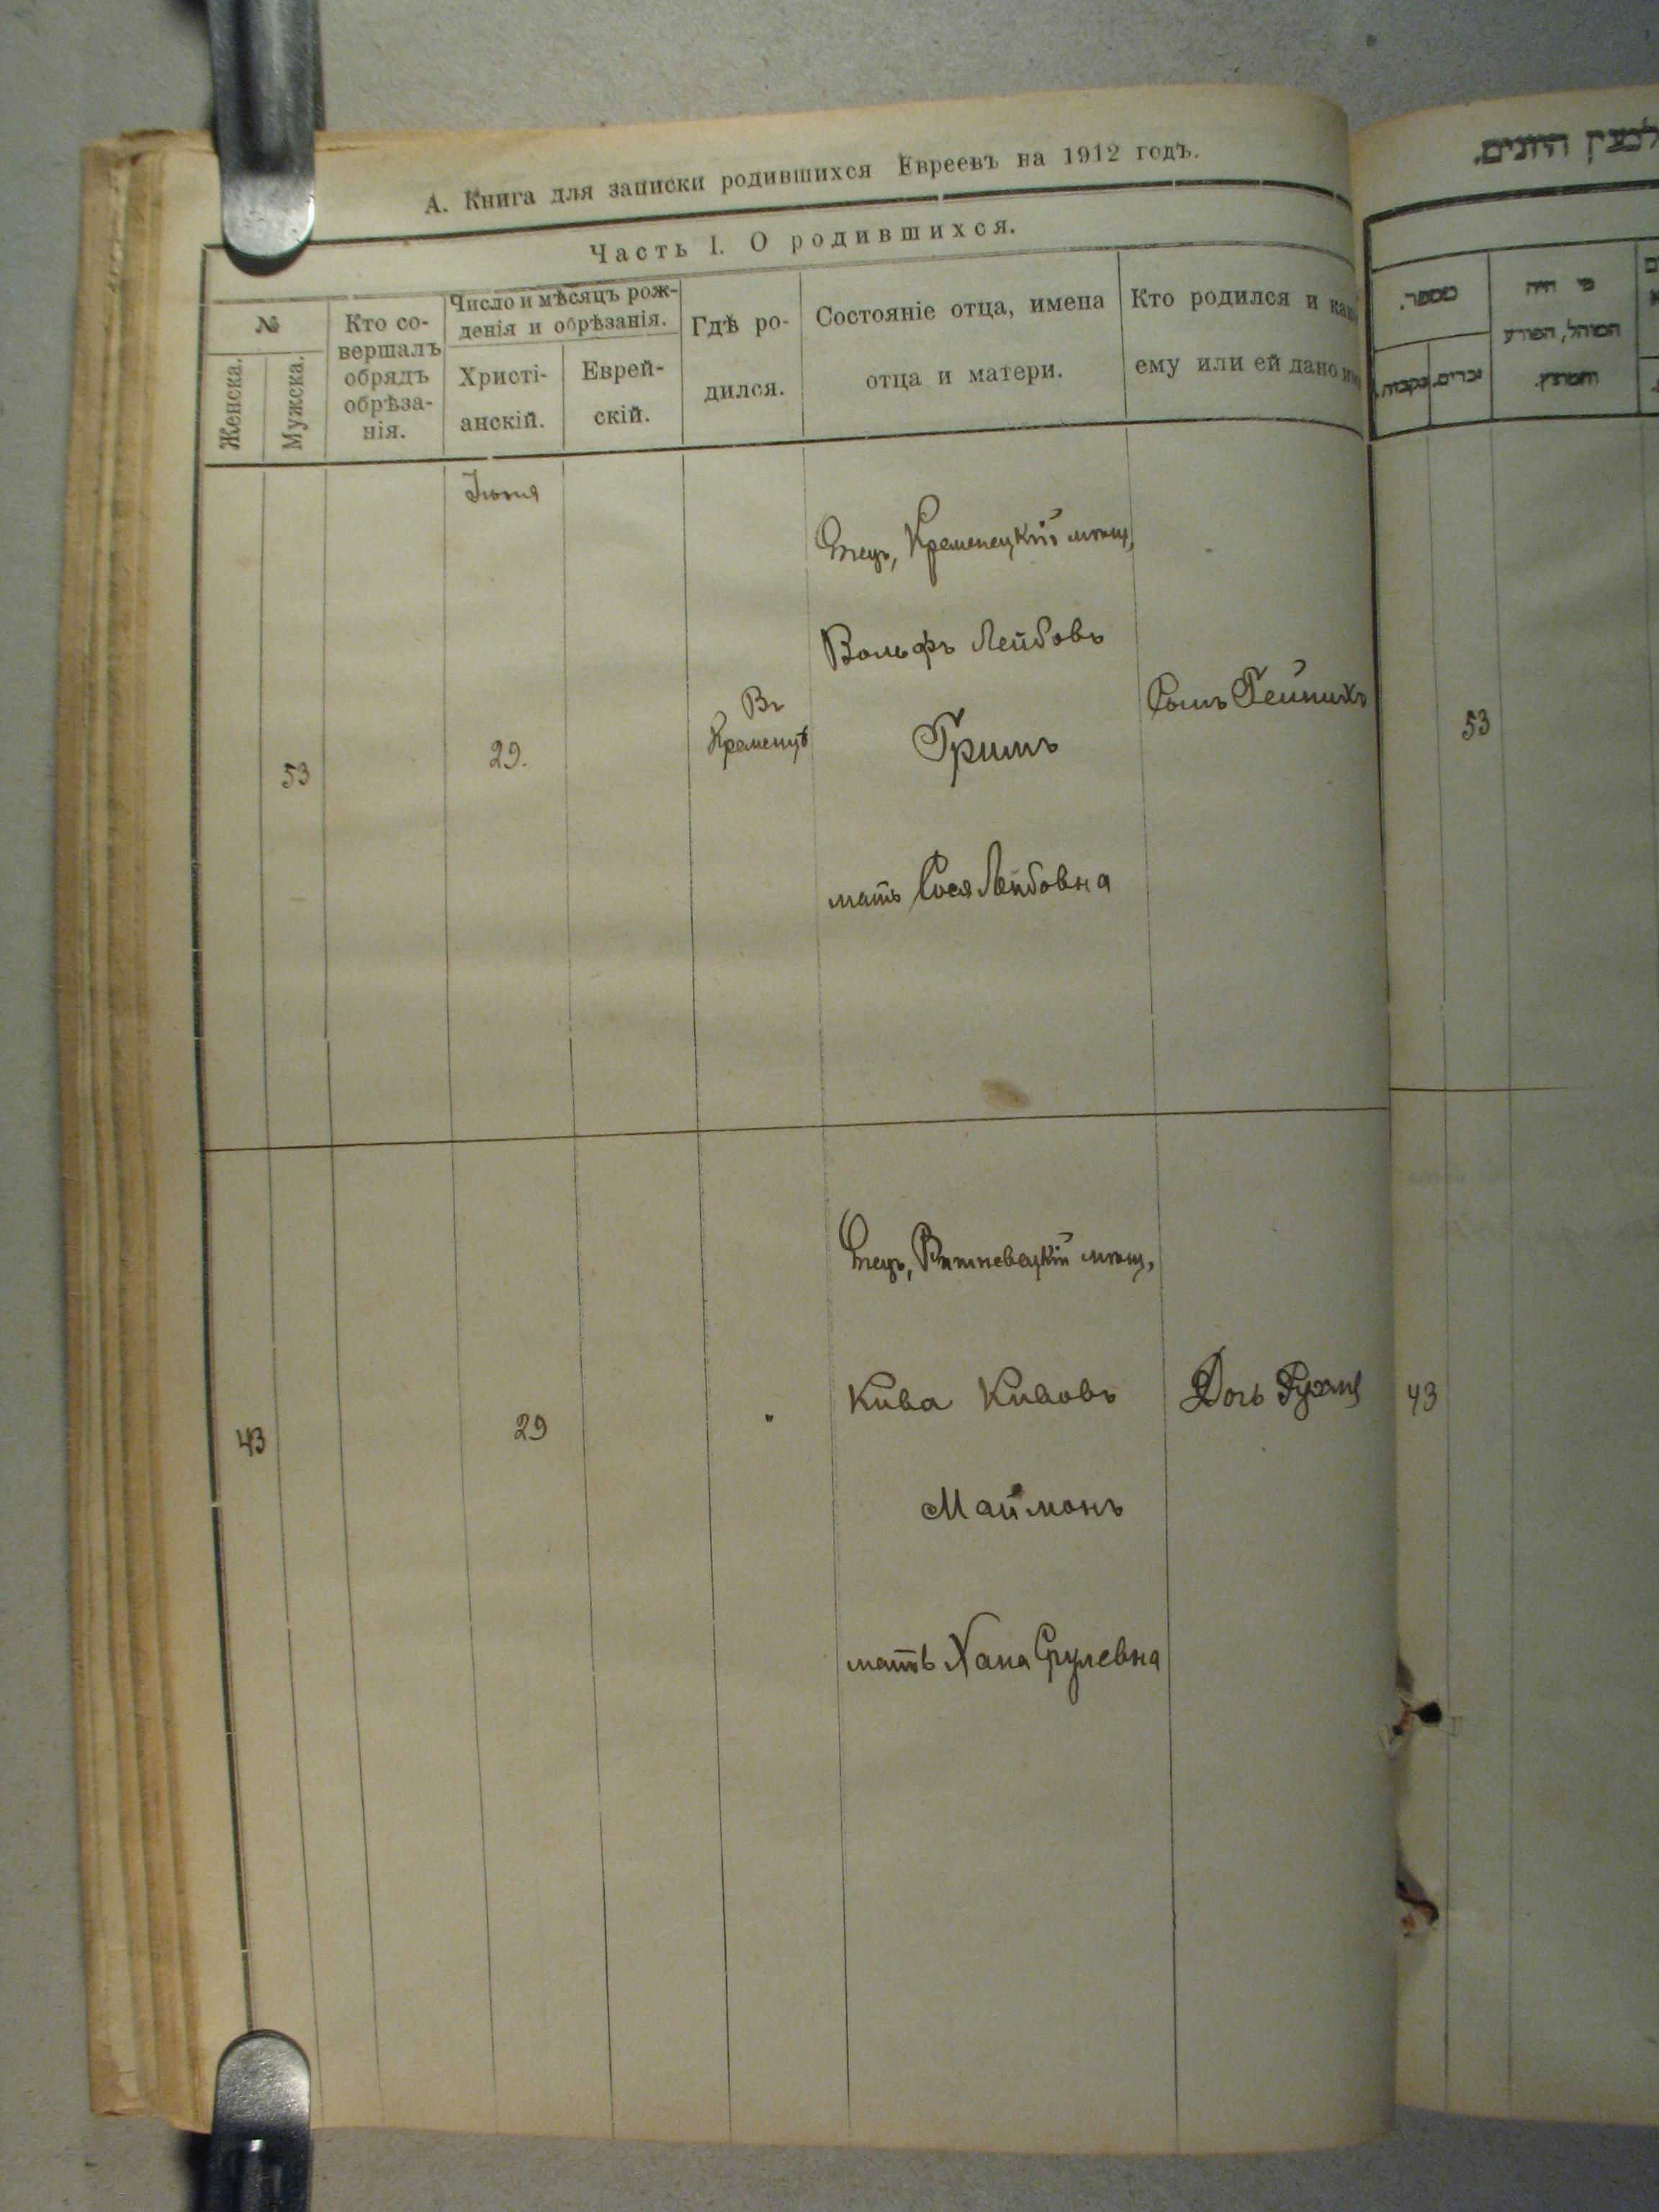 А. Книга для записки родившихся Евреевъ на 1912 годъ.
Часть I. О родившихся.
№
Женска.
Мужска.
Кто со-
вершалъ
обрядъ
обрѣза-
нія.
Число и мѣсяцъ рож-
денія и обрѣзанія.
Христі-
анскій.
Еврей-
скій.
Гдѣ ро-
дился.
Состояніе отца, имена
отца и матери.
Кто родился и как
ему или ей дано
53
29.
Въ
Кременцѣ
Отецъ, Кременецкій мѣщ,
Вольфъ Лейбовъ
Гримъ
мать Сося Лейбовна
Сынъ Гейнихъ
43
29
"
Отецъ, Вишневецкій мѣщ,
Кива Кивовъ
Маймонъ
мать Хана Срулевна
Дочь
היונים.
מספר.
זכרים.
נקבות.
מי היה
המוהל, הפורע
והמוצץ.
53
43